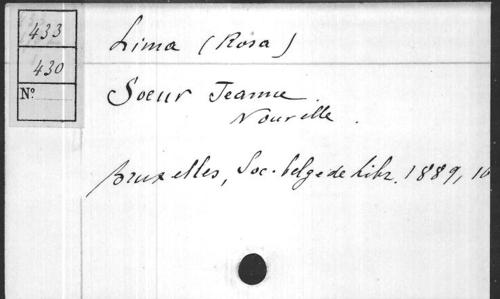 433
430
N°
Lima (Rosa)
Soeur Jeanne.
Nouvelle.
Bruxelles, Soc. belge de libr. 1889, 10